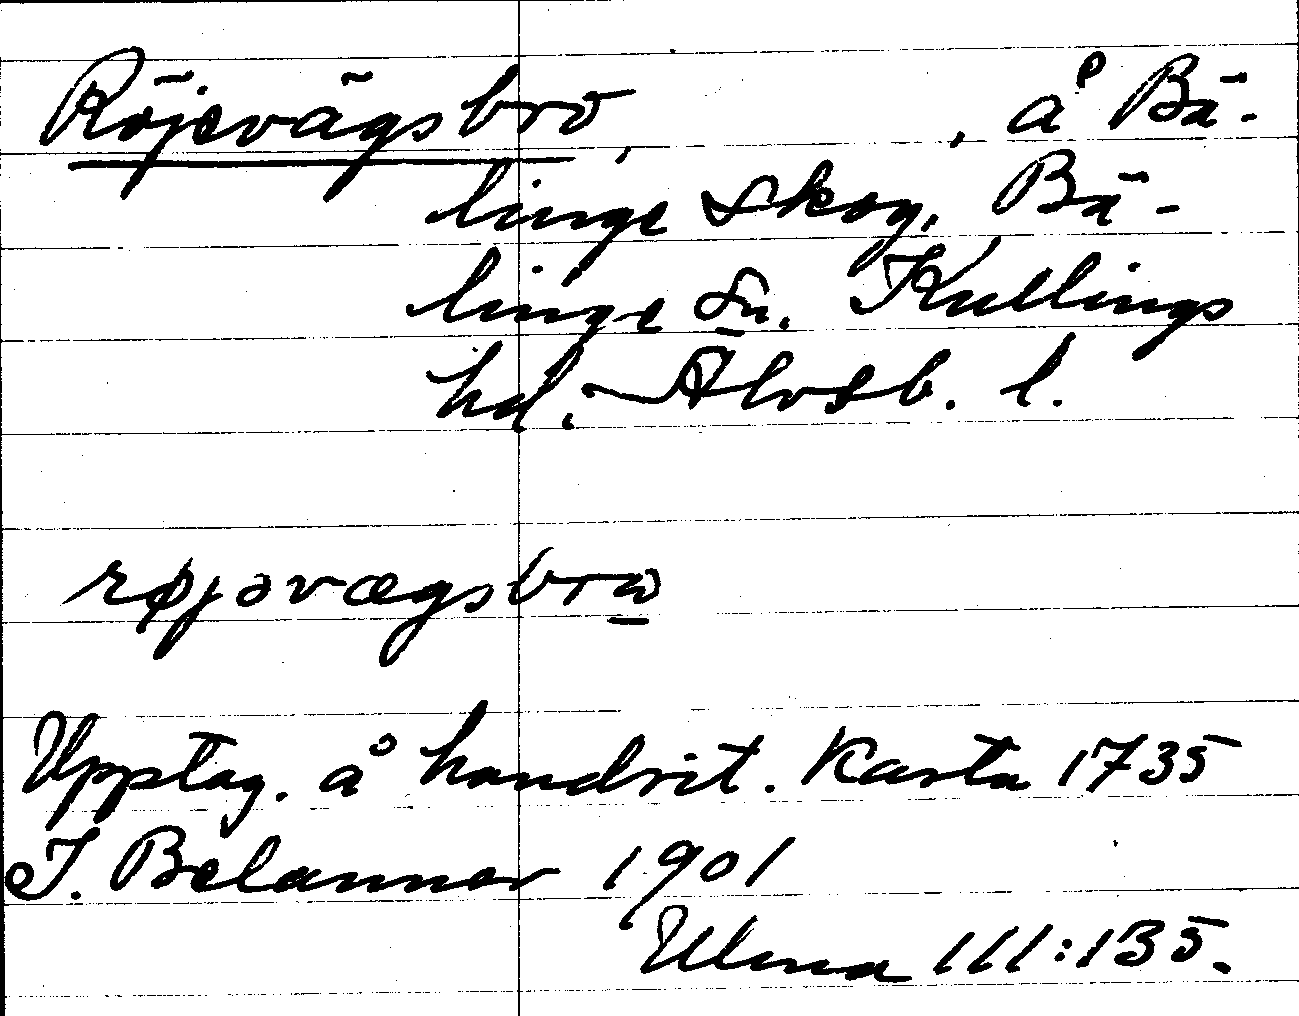 Röjevägsbro, , å Bä-
linge skog, Bä-
linge sn. Kullings
hd. Älvsb. l.
røjəvægsbrω
Upptag. å handrit. Karta 1735
T. Belanner 1901
Ulma 111:135.